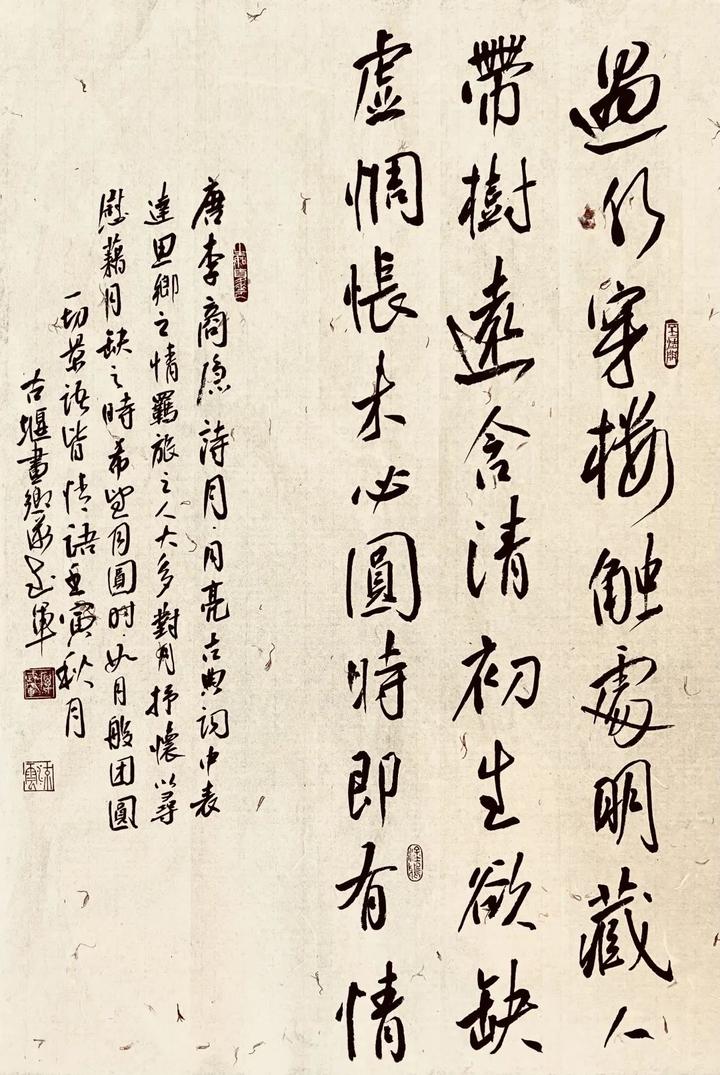 過水穿楼触處明藏人
帶樹遠含清初生欲缺
虛惆悵未必圓時即有情
唐李商隐詩月月亮古典詞中表
達思鄉之情羈旅之人大多對月抒懷以尋
慰藉月缺之時希望月圓时如月般团圓
一切景語皆情語壬寅秋月
古堰畫鄉